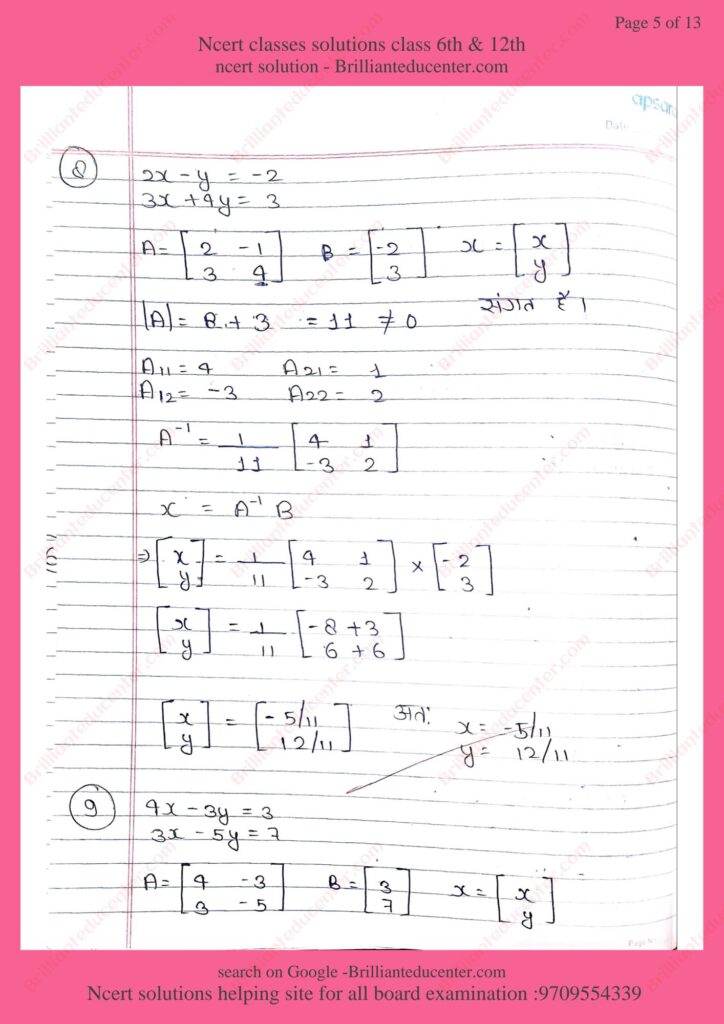 Page 5 of 13
Ncert classes solutions class 6th & 12th
ncert solution - Brillianteducenter.com
apsara
Date
8
2x - y = -2
3x + 4y = 3
A = [2 -1
3 4] B = [-2
3] x = [x
y]
|A| = 8 + 3 = 11 ≠ 0 संगत हैं।
A11 = 4 A21 = 1
A12 = -3 A22 = 2
A⁻¹ = 1/11 [4 1
-3 2]
x = A⁻¹ B
⇒ [x
y] = 1/11 [4 1
-3 2] × [-2
3]
[x
y] = 1/11 [-8 + 3
6 + 6]
[x
y] = [-5/11
12/11] अत: x = -5/11
y = 12/11
9
4x - 3y = 3
3x - 5y = 7
A = [4 -3
3 -5] B = [3
7] x = [x
y]
search on Google -Brillianteducenter.com
Ncert solutions helping site for all board examination :9709554339